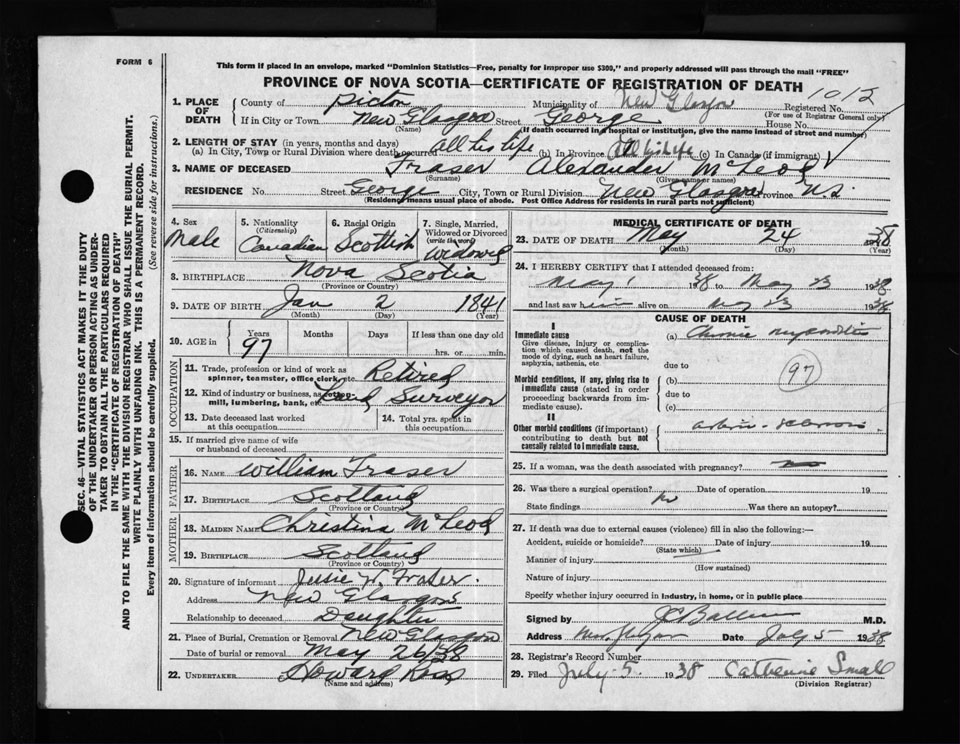 FORM 6
This form if placed in an envelope, marked "Dominion Statistics—Free, penalty for improper use $300," and properly addressed will pass through the mail "FREE"
PROVINCE OF NOVA SCOTIA—CERTIFICATE OF REGISTRATION OF DEATH
1012
1. PLACE OF DEATH
County of Pictou Municipality of New Glasgow Registered No.
(For use of Registrar General only)
If in City or Town New Glasgow Street George House No.
(Name) (If death occurred in a hospital or institution, give the name instead of street and number)
2. LENGTH OF STAY (in years, months and days)
(a) In City, Town or Rural Division where death occurred all his life (b) In Province All his life (c) In Canada (if immigrant)
3. NAME OF DECEASED Fraser Alexander McLeod
(Surname) (Given names)
RESIDENCE No. Street George City, Town or Rural Division New Glasgow Province N.S.
(Residence means usual place of abode. Post Office Address for residents in rural parts not sufficient)
4. Sex Male
5. Nationality (Citizenship) Canadian
6. Racial Origin Scottish
7. Single, Married, Widowed or Divorced (write the word) Widowed
8. BIRTHPLACE Nova Scotia
(Province or Country)
9. DATE OF BIRTH Jan 2 1841
(Month) (Day) (Year)
10. AGE in Years Months Days If less than one day old
97 hrs. or min.
OCCUPATION
11. Trade, profession or kind of work as spinner, teamster, office clerk, etc. Retired
12. Kind of industry or business, as cotton mill, lumbering, bank, etc. Land Surveyor
13. Date deceased last worked at this occupation
14. Total yrs. spent in this occupation
15. If married give name of wife or husband of deceased
FATHER
16. NAME William Fraser
17. BIRTHPLACE Scotland
(Province or Country)
MOTHER
18. MAIDEN NAME Christina McLeod
19. BIRTHPLACE Scotland
(Province or Country)
20. Signature of informant Jessie W. Fraser.
Address New Glasgow
Relationship to deceased Daughter
21. Place of Burial, Cremation or Removal New Glasgow
Date of burial or removal May 26/38
22. UNDERTAKER Howard Ross
(Name and address)
MEDICAL CERTIFICATE OF DEATH
23. DATE OF DEATH May 24 1938
(Month) (Day) (Year)
24. I HEREBY CERTIFY that I attended deceased from:
May 1 1938 to May 23 1938
and last saw him alive on May 23 1938
CAUSE OF DEATH
I
Immediate cause (a) Chronic myocarditis
Give disease, injury or complication which caused death, not the mode of dying, such as heart failure, asphyxia, asthenia, etc.
due to
97
Morbid conditions, if any, giving rise to immediate cause (stated in order proceeding backwards from immediate cause).
(b)
due to
(c)
II
Other morbid conditions (if important) contributing to death but not causally related to immediate cause. arterio-sclerosis
25. If a woman, was the death associated with pregnancy?
26. Was there a surgical operation? no Date of operation 19
State findings Was there an autopsy?
27. If death was due to external causes (violence) fill in also the following:—
Accident, suicide or homicide? Date of injury 19
(State which)
Manner of injury
(How sustained)
Nature of injury
Specify whether injury occurred in industry, in home, or in public place
Signed by M.D.
Address Date July 5 1938
28. Registrar's Record Number
29. Filed July 5. 1938 Catherine Small
(Division Registrar)
SEC. 46—VITAL STATISTICS ACT MAKES IT THE DUTY
OF THE UNDERTAKER OR PERSON ACTING AS UNDER-
TAKER TO OBTAIN ALL THE PARTICULARS REQUIRED
IN THE "CERTIFICATE OF REGISTRATION OF DEATH"
AND TO FILE THE SAME WITH THE DIVISION REGISTRAR WHO SHALL ISSUE THE BURIAL PERMIT.
WRITE PLAINLY WITH UNFADING INK. THIS IS A PERMANENT RECORD.
Every item of information should be carefully supplied. (See reverse side for instructions.)